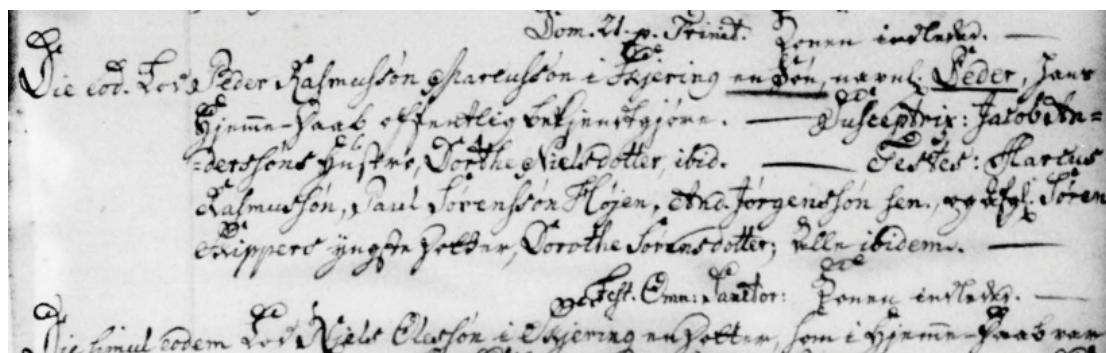 Dom. 21. p. Trinit. Konen indleded. —
Die eod. Lod Peder Rasmussøn Marcussøn i Skjering en Søn, navnl. Peder, hans
Hjemme-Daab offentlig bekjendtgjøre. — Susceptrix: Jacob An-
-derssøns Hustrue, Dorthe Nielsdotter, ibid. — Testes: Marcus
Rasmussøn, Paul Sørenssøn Højen, And. Jørgenssøn sen., og Søren
Skippers yngste Dotter, Dorothe Sørensdotter; Alle ibidem. —
Fest. Omn: Sanctor: Konen indleded. —
Die simul eodem Lod Niels Olessøn i Skjering en Dotter, som i Hjemme-Daab var